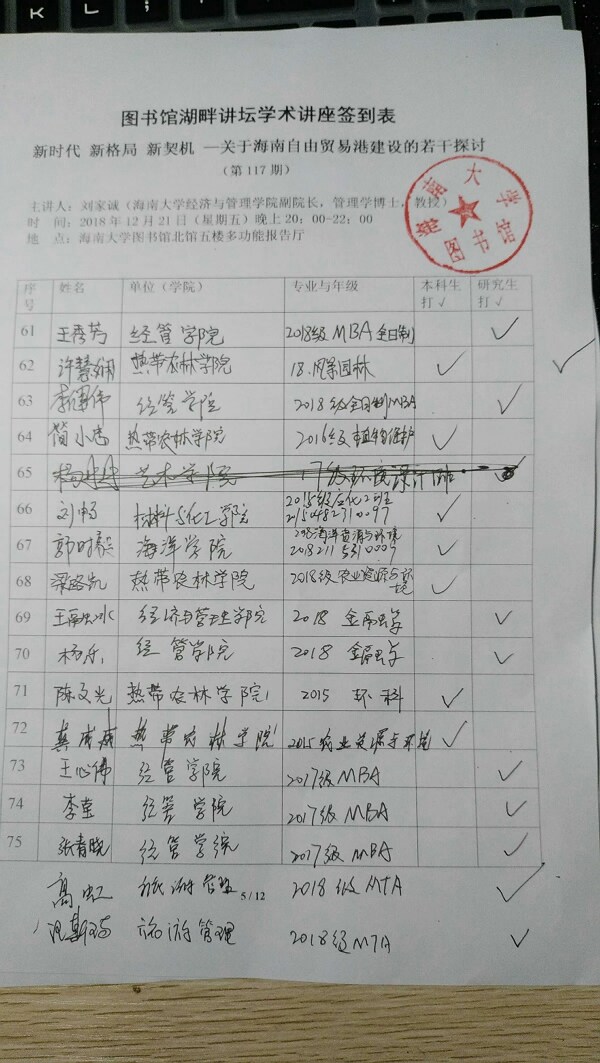 图书馆湖畔讲坛学术讲座签到表
新时代 新格局 新契机 —关于海南自由贸易港建设的若干探讨
（第 117 期）
主讲人：刘家诚（海南大学经济与管理学院副院长，管理学博士，教授）
时 间：2018 年 12 月 21 日（星期五）晚上 20：00-22：00
地 点：海南大学图书馆北馆五楼多功能报告厅
海南大学
图书馆
序号 姓名 单位（学院） 专业与年级 本科生打√ 研究生打√
61 王秀芳 经管学院 2018级 MBA 全日制 √
62 热带农林学院 18.风景园林 √ √
63 经管学院 2018级全日制MBA √
64 简小春 热带农林学院 2016级植物保护 √
65 艺术学院 17级环境设计 √
66 刘畅 材料与化工学院 2015级应化2班 20150482310097 √
67 海洋学院 2018海洋资源与环境 √
68 梁路凯 热带农林学院 2018级农业资源与环境 √
69 经济与管理学院 2018 金融学 √
70 杨乐 经管学院 2018 金融学 √
71 陈文光 热带农林学院 2015 环科 √
72 龚成威 热带农林学院 2015农业资源与环境 √
73 王心伟 经管学院 2017级MBA √
74 李莹 经管学院 2017级MBA √
75 张青晓 经管学院 2017级MBA √
高虹 旅游管理 2018级MTA √
旅游管理 2018级MTA √
5 / 12